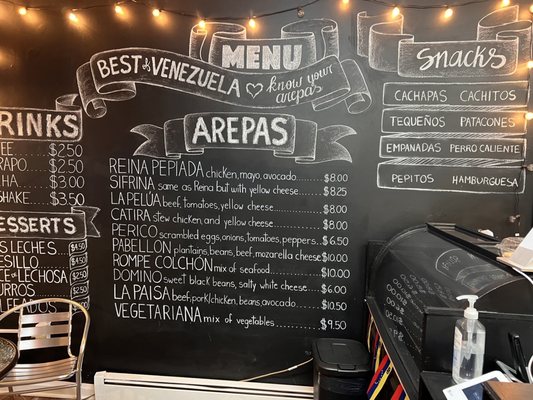 MENU
BEST of VENEZUELA know your arepas
AREPAS
REINA PEPIADA chicken, mayo, avocado $8.00
SIFRINA same as Reina but with yellow cheese $8.25
LA PELÚA beef, tomatoes, yellow cheese $8.00
CATIRA stew chicken, and yellow cheese $8.00
PERICO scrambled eggs, onions, tomatoes, peppers $6.50
PABELLON plantains, beans, beef, mozarella cheese $10.00
ROMPE COLCHON mix of seafood $10.00
DOMINO sweet black beans, salty white cheese $6.00
LA PAISA beef, pork/chicken, beans, avocado $10.50
VEGETARIANA mix of vegetables $9.50
RINKS
EE $2.50
RAPO $2.50
HA $3.00
SHAKE $3.50
ESSERTS
S LECHES $4.50
ESILLO $4.50
CE de LECHOSA $2.50
URROS $2.50
LFEADOS
Snacks
CACHAPAS CACHITOS
TEQUEÑOS PATACONES
EMPANADAS PERRO CALIENTE
PEPITOS HAMBURGUESA